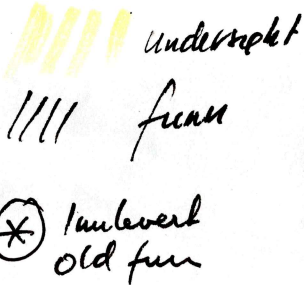 undersøkt
funn
Innlevert
old funn